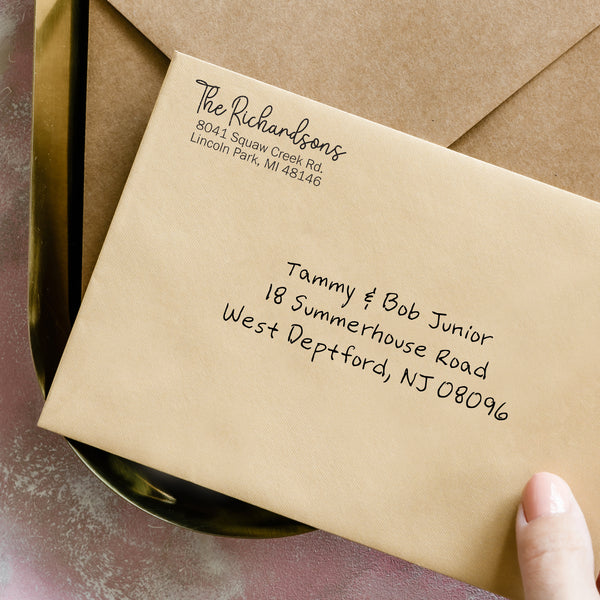 The Richardsons
8041 Squaw Creek Rd.
Lincoln Park, MI 48146
Tammy & Bob Junior
18 Summerhouse Road
West Deptford, NJ 08096